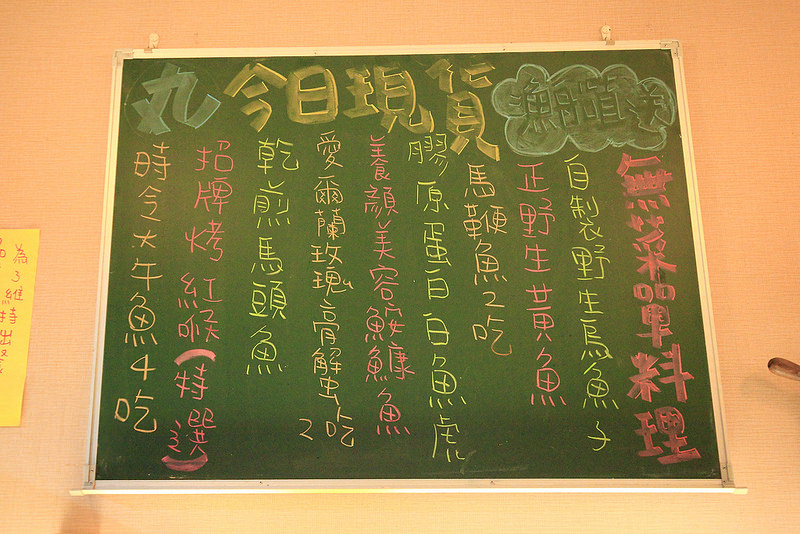 丸 今日現貨 漁船直送
無菜單料理
自製野生烏魚子
正野生黃魚
馬鞭魚2吃
膠原蛋白白魚虎
養顏美容鮟鱇魚
愛爾蘭玫瑰膏解虫2吃
乾煎馬頭魚
招牌烤紅喉(特選)
時令大午魚4吃
為了維持出